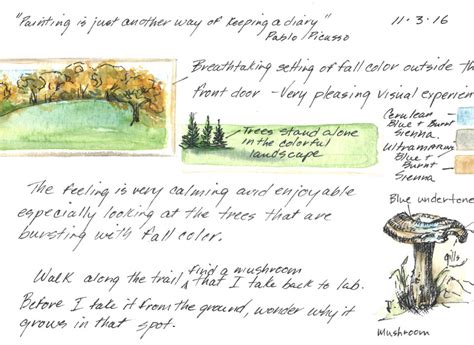 "Painting is just another way of keeping a diary" 11·3·16
Pablo Picasso
Breathtaking setting of fall color outside the
front door - Very pleasing visual experien
Trees stand alone
in the colorful
landscape
Cerulean
Blue + Burnt
Sienna
Ultramarine
Blue +
Burnt
Sienna
The feeling is very calming and enjoyable
especially looking at the trees that are
bursting with fall color.
Blue undertone
Walk along the trail find a mushroom
that I take back to lab.
Before I take it from the ground, wonder why it
grows in that spot.
gills
Mushroom